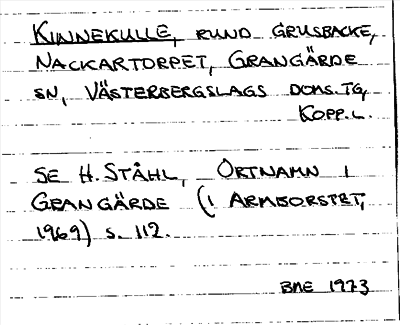 KINNEKULLE, RUND GRUSBACKE,
NACKARTORPET, GRANGÄRDE
SN, VÄSTERBERGSLAGS DOMS.TG,
KOPP.L.
SE H. STÅHL, ORTNAMN I
GRANGÄRDE (I ARMBORSTET,
1969) S. 112.
BME 1973